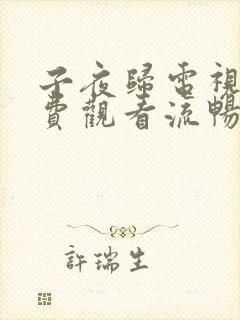 子夜歸電視
費觀看流暢
許瑞生